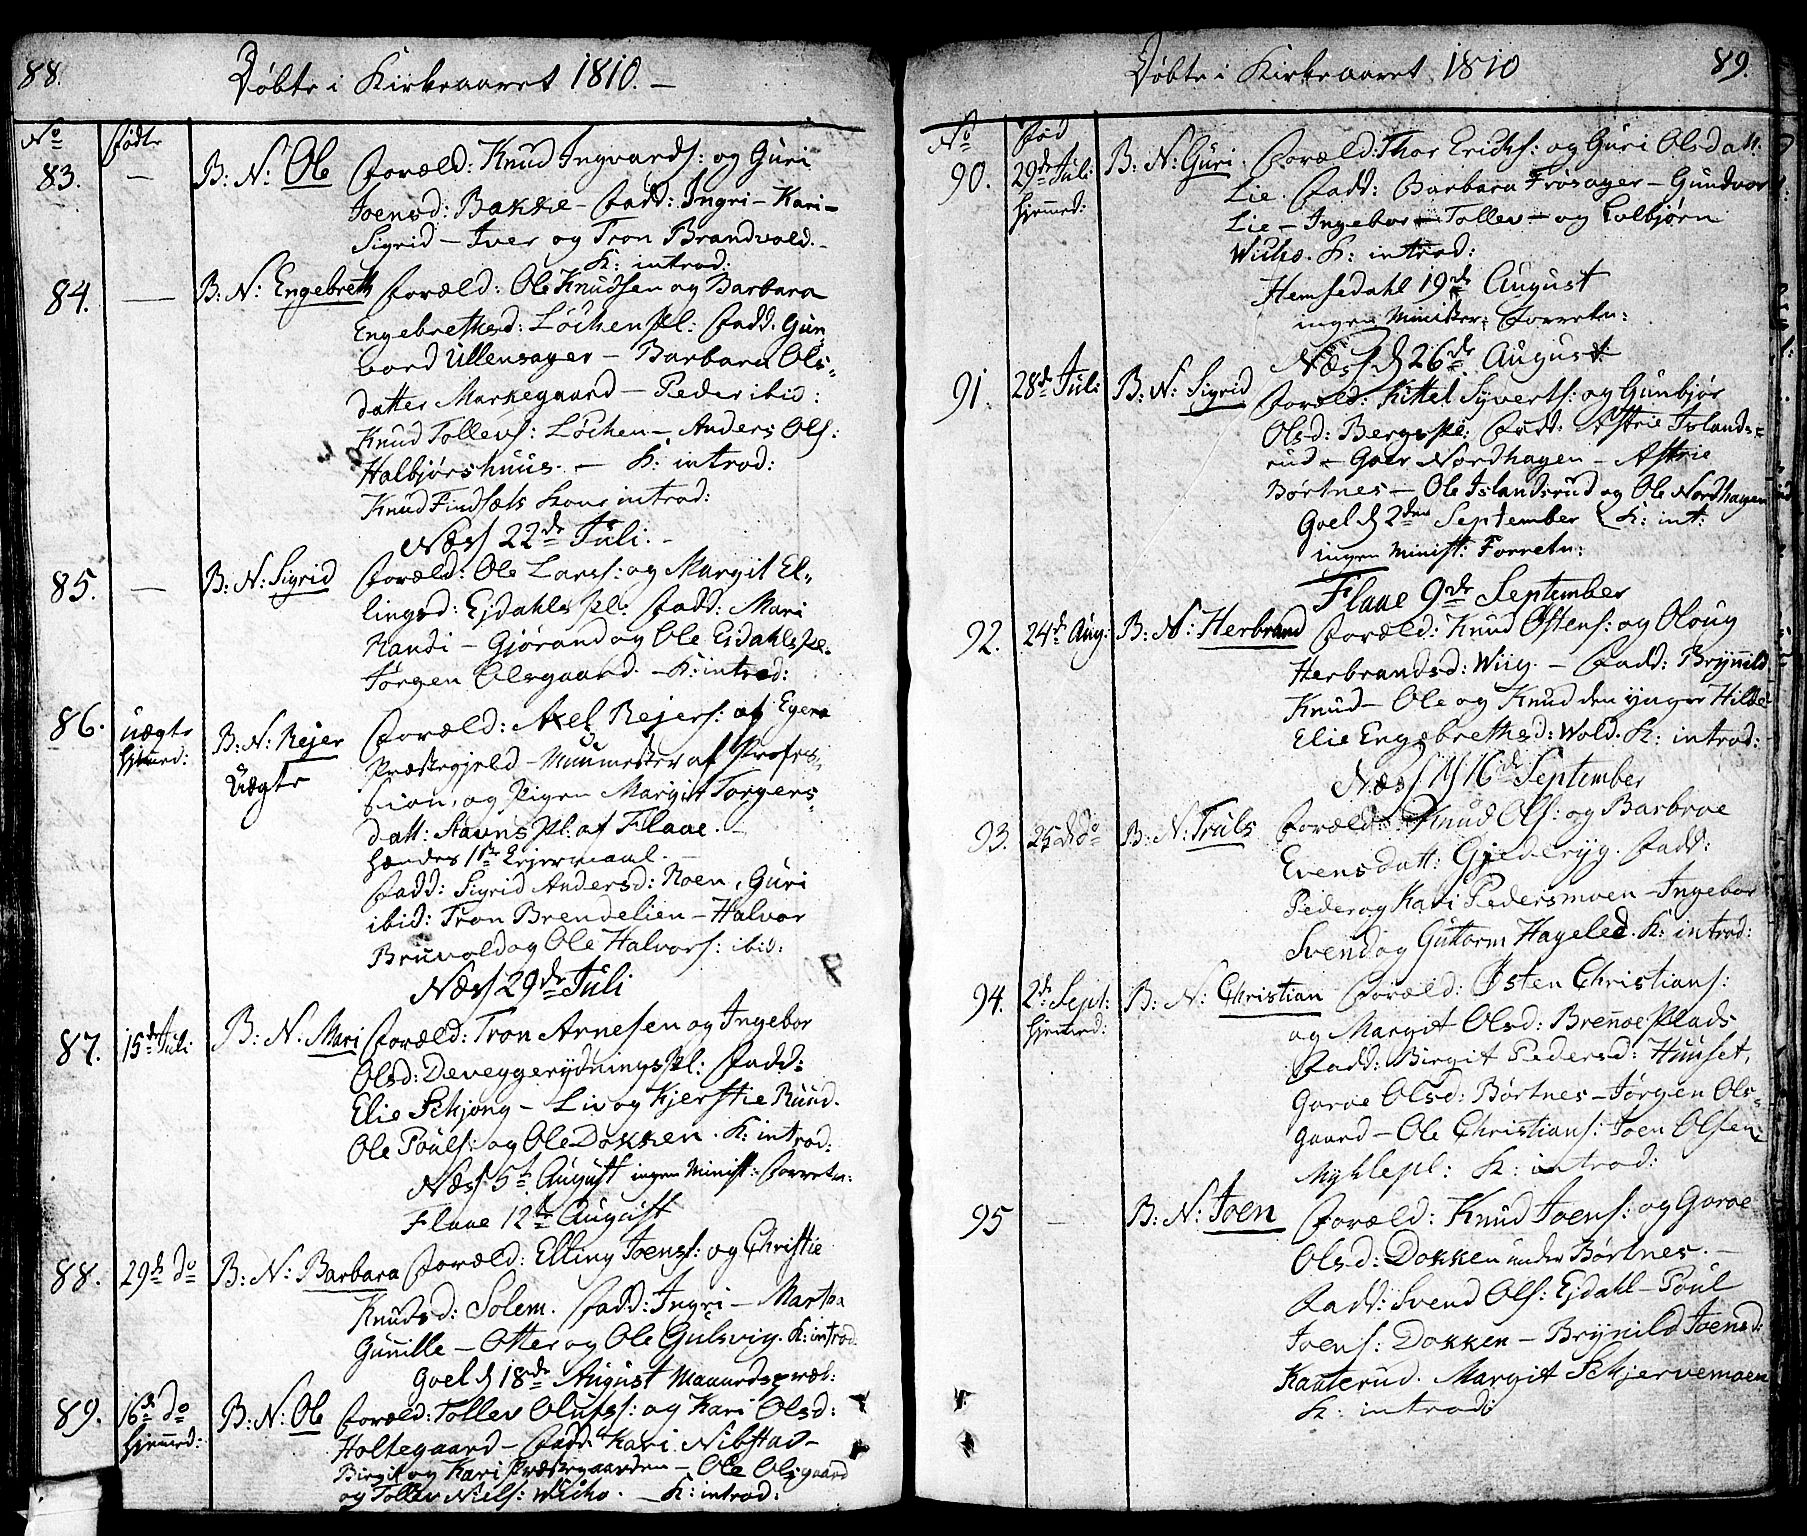 88.
Döbte i Kirkeaaret 1810. —
No
födte
83.
—
B: N: Ole Foræld: Knud Ingvards: og Guri
Joensd: Bakke — Fadd: Ingri — Kari —
Sigrid — Iver og Tron Brandvold. —
K: introd:
84.
—
B: N: Engebreth Foræld: Ole Knudsen og Barbara
Engebrethsd: Löchen Pl: Fadd. Gun„
vord Ullensager — Barbara Ols„
datter Markegaard — Peder ibid:
Knud Tollevs: Löchen — Anders Ols:
Halbjørshuus. — K: introd:
Knud Findsets Kone introd:
Næss 22de Juli. —
85.
—
B: N: Sigrid Foræld: Ole Larss: og Margit El„
lingsd: Ejdahls Pl: Fadd: Mari
Handi — Gjörand og Ole Eidahlspl.
Jörgen Olsgaard. — K: introd:
86.
uægte
hjemmed:
B: N: Rejer
Uægte
Foræld: Axel Rejers: af Egers
Præstegjeld — Muurmester af Profes„
sion, og Pigen Margit Torgers„
datt: Stavns Pl: af Flaae. —
hændes 1ste Lejermaal. —
Fadd: Sigrid Andersd: Roen, Guri
ibid: Tron Brendelien — Halvor
Bruvold og Ole Halvors: ibid:
Næss 29de Juli
87.
15de Juli
B: N: Mari Foræld: Tron Arnesen og Ingebor
Olsd: Deveggerydnings Pl: Fadd:
Elie Skjong — Liv og Kjerstie Ruud.
Ole Pouls: og Ole Dokken. K: introd:
Næss 5te August ingen Minist: Forretn:
Flaae 12te August
88.
29de do
B: N: Barbara Foræld: Elling Joenss: og Christie
Knudsd: Solem. Fadd: Ingri — Marta
Gunille — Otter og Ole Gulsvig. K: introd.
Goel d 18de August Maanedspræk:
89.
16de do
hjemmed:
B: N: Ole Foræld: Tollev Olufss: og Kari Olsd:
Holtegaard — Fadd: Kari Nibstad —
Birgit og Kari Præstegaarden — Ole Olsgaard
og Tollev Niels: Wicho. — K: introd:
Döbte i Kirkeaaret 1810
89.
No
Född
90.
29de Juli
hjemmed:
B: N: Guri. Foræld: Thor Erichs: og Guri Olsdatt:
Lie. Fadd: Barbara Frösager — Gundvor
Lie — Ingebor — Tollev — og Colbjörn
Wicho. K: introd:
Hemsedahl 19de August
ingen Minister: Forretn:
Næss d 26de August
91.
28de Juli
B: N: Sigrid Foræld: Kittel Syverts: og Gunbjör
Olsd: Bergspl: Fadd: Astrie Islands„
rud — Goer Nordhagen — Astrie
Börtnes — Ole Islandsrud og Ole Nordhagen
Goel d 2den September K: int:
ingen Minist: Forretn:
Flaae 9de September
92.
24de Aug:
B: N: Herbrand Foræld: Knud Östens: og Oloug
Herbrandsd: Wiig. — Fadd: Brynild
Knud — Ole og Knud den ynger Hilde —
Elie Engebrethsd: Wold. K: introd:
Næss d 16de September
93.
25de do
B: N: Truls Foræld: Knud Ols: og Barbroe
Evensdatt: Gjederyg. Fadd:
Peder og Kari Pedersmoen — Ingebor
Svend og Guttorm Hageled. K: introd:
94.
2de Sept:
hjemmed:
B: N: Christian Foræld: Østen Christians:
og Margit Olsd: Brenoe Plads
Fadd: Birgit Pedersd: Huuset,
Goroe Olsd: Börtnes — Jörgen Ols„
gaard — Ole Christians: Joen Olsen
Myklepl: K: introd:
95
—
B: N: Joen Foræld: Knud Joens: og Goroe
Olsd: Dokken under Börtnes. —
Fadd: Svend Ols: Ejdahl — Poul
Joens: Dokken — Brynild Joensd:
Kaaterud. Margit Skjervemoen
K: introd: